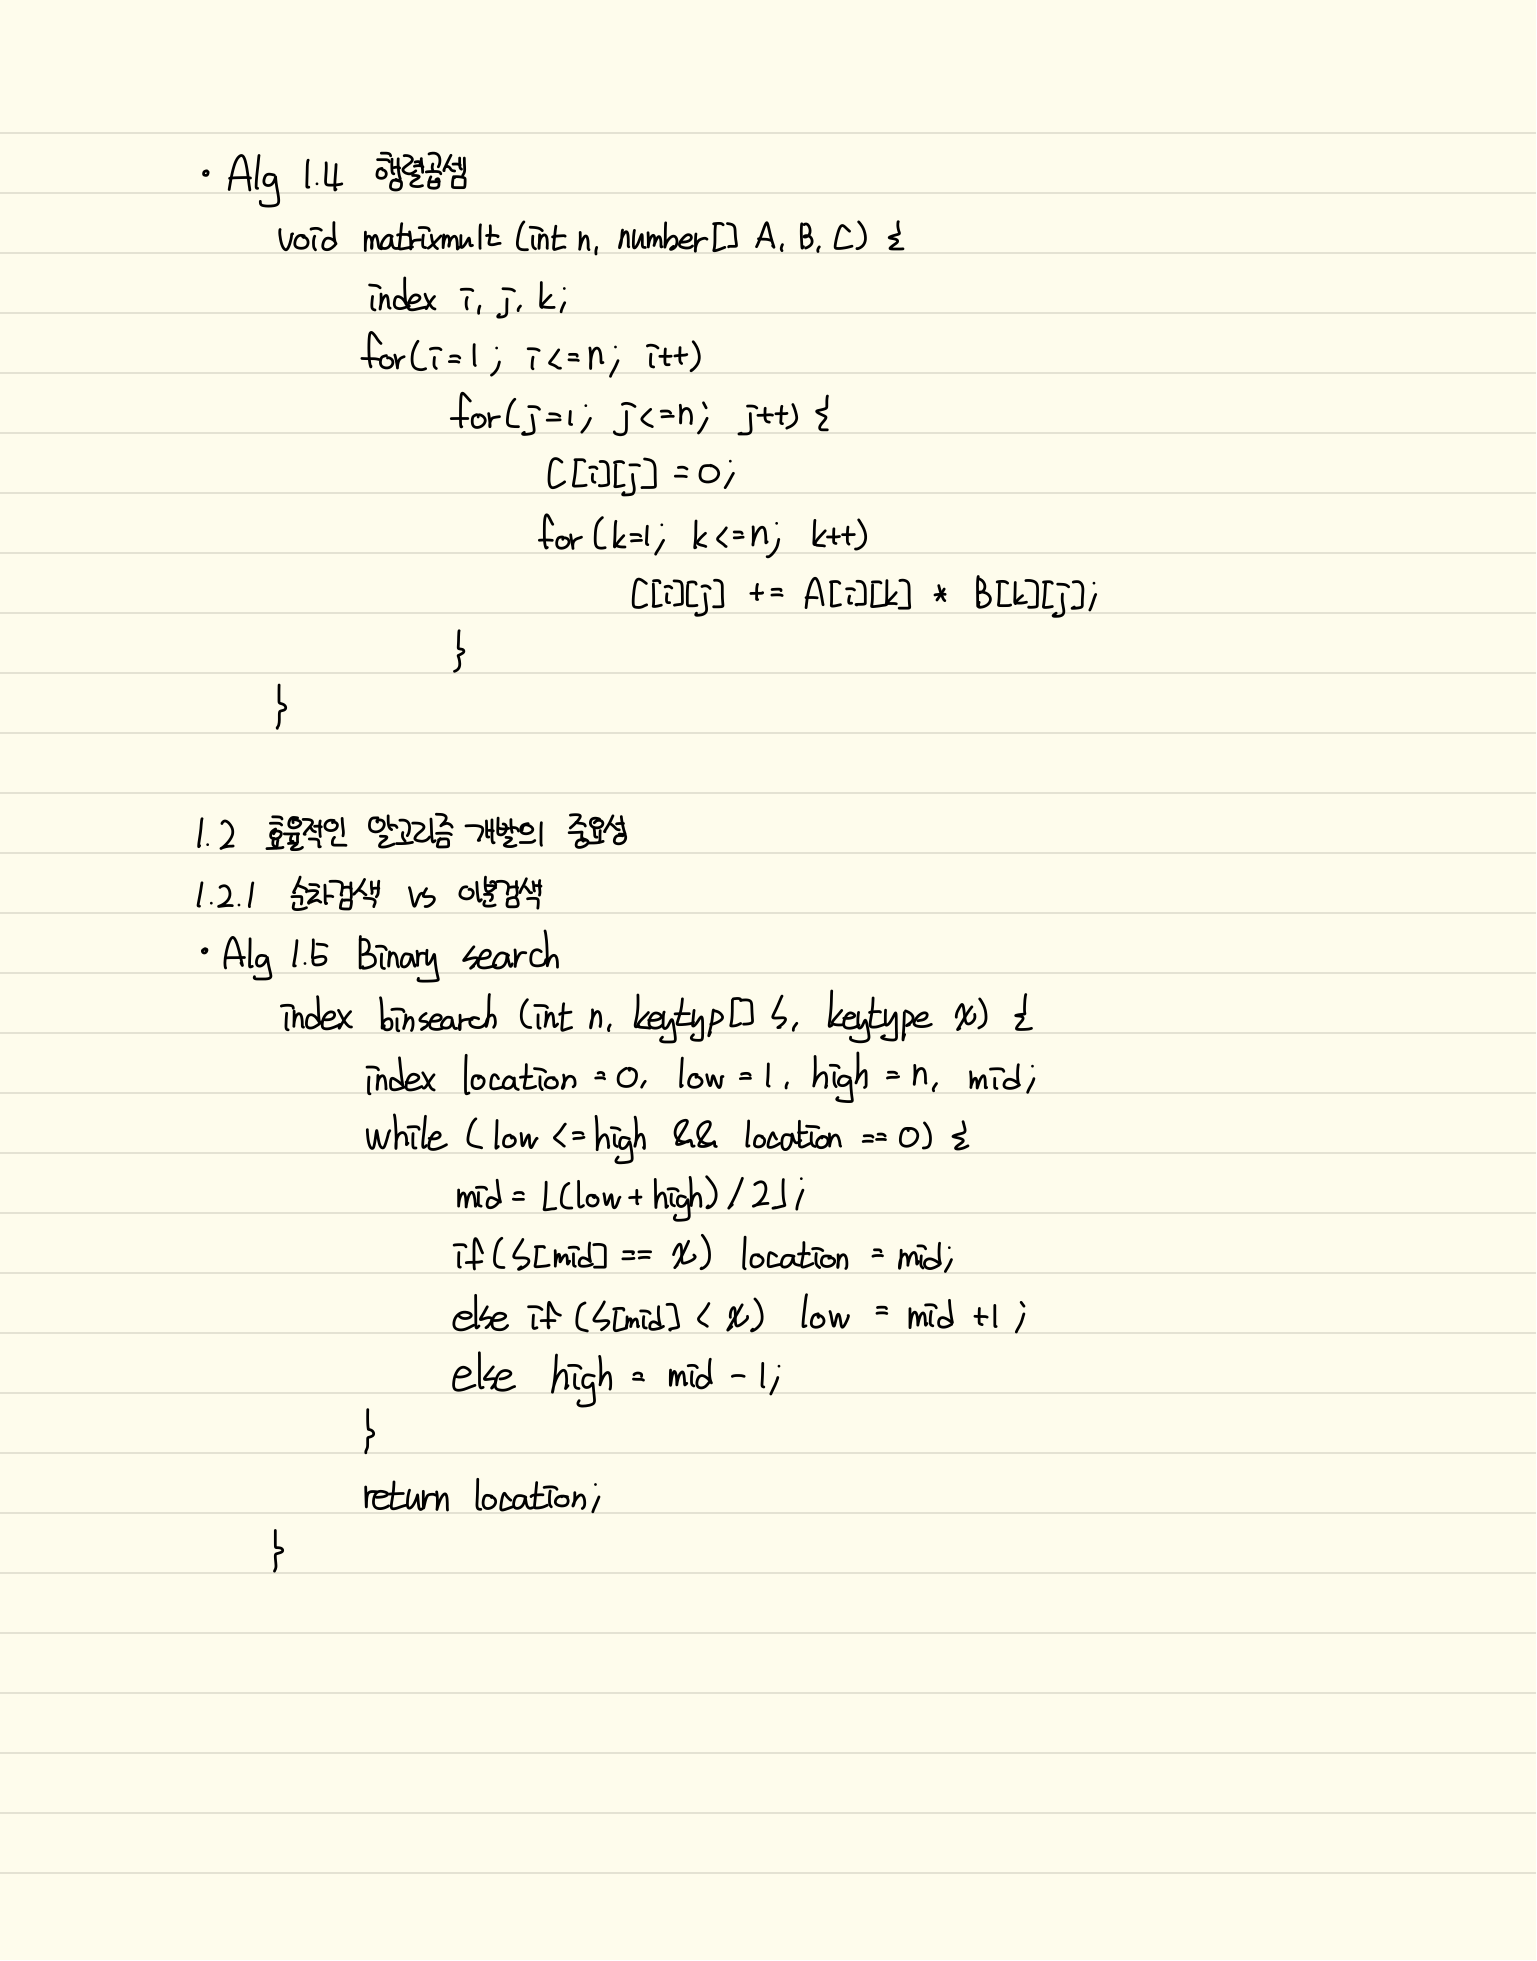 • Alg 1.4 행렬곱셈
void matrixmult (int n, number[] A, B, C) {
index i, j, k;
for(i=1; i<=n; i++)
for(j=1; j<=n; j++) {
C[i][j] = 0;
for (k=1; k<=n; k++)
C[i][j] += A[i][k] * B[k][j];
}
}
1.2 효율적인 알고리즘 개발의 중요성
1.2.1 순차검색 vs 이분검색
• Alg 1.5 Binary search
index binsearch (int n, keytyp[] S, keytype x) {
index location = 0, low = 1, high = n, mid;
while (low <= high && location == 0) {
mid = ⌊(low + high) / 2⌋;
if (S[mid] == x) location = mid;
else if (S[mid] < x) low = mid +1;
else high = mid - 1;
}
return location;
}